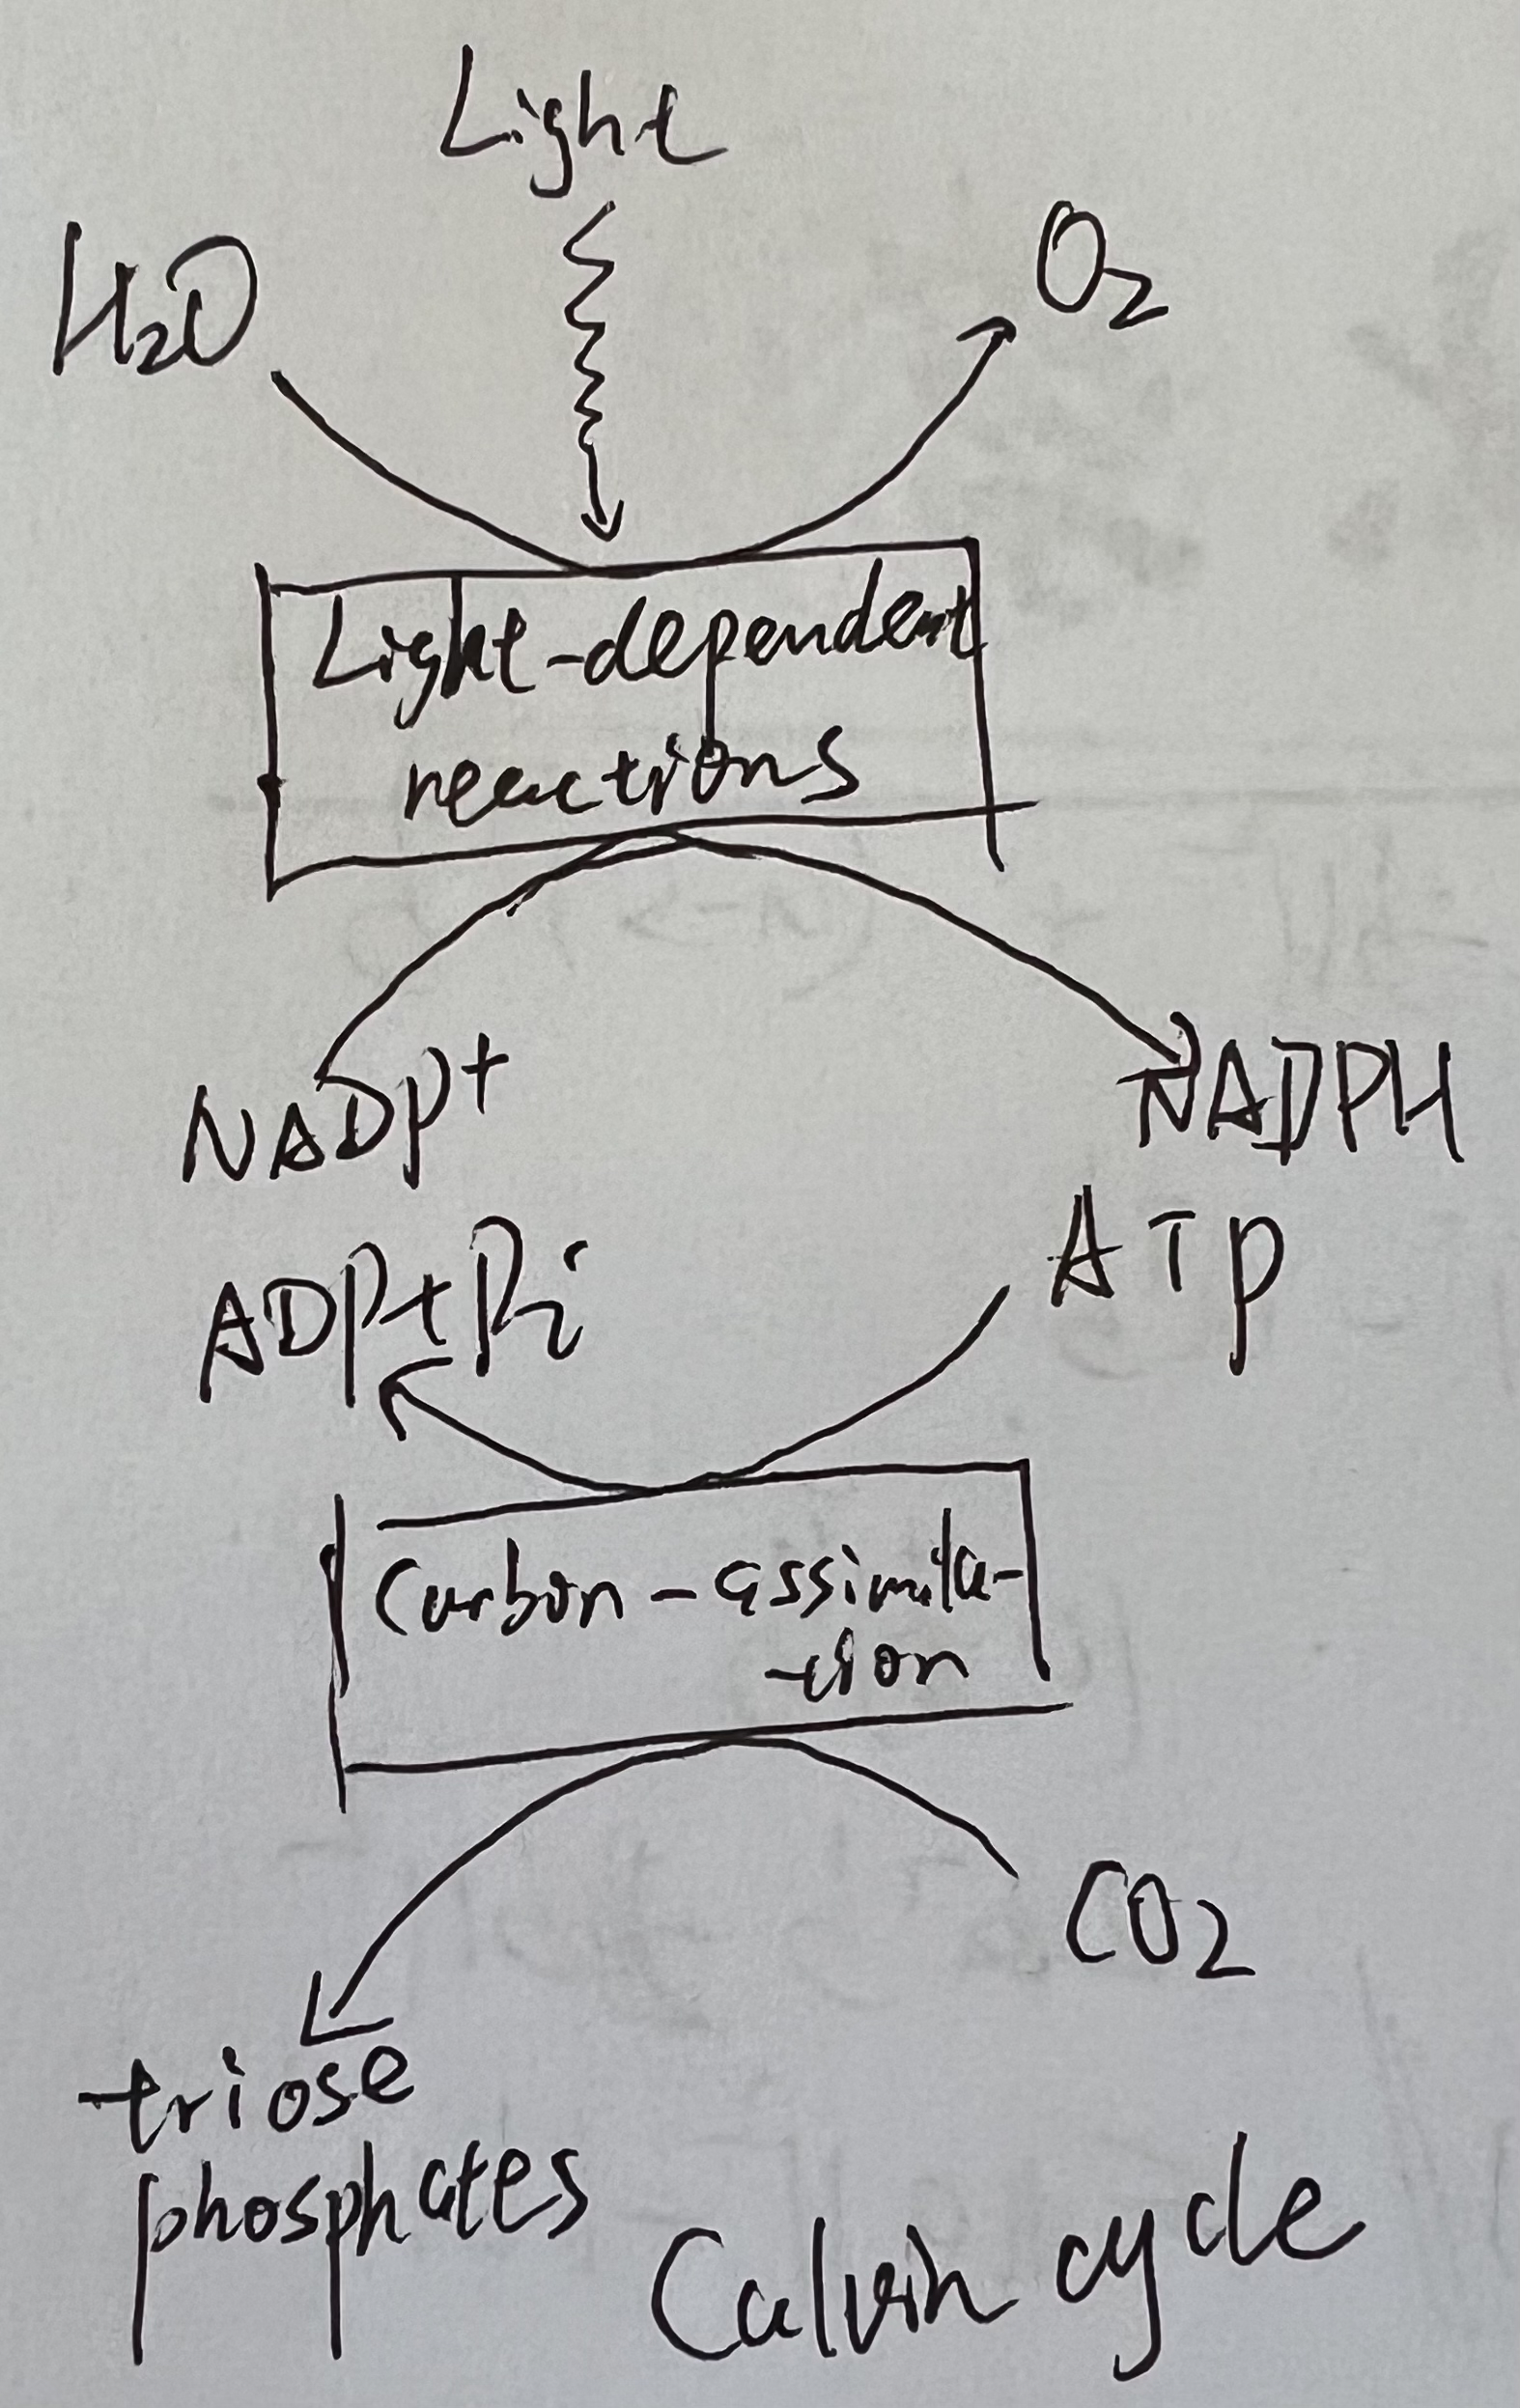 Light
H₂O
O₂
Light-dependent
reactions
NADP⁺
NADPH
ADP+Pi
ATP
Carbon-assimila-
-tion
CO₂
triose
phosphates
Calvin cycle